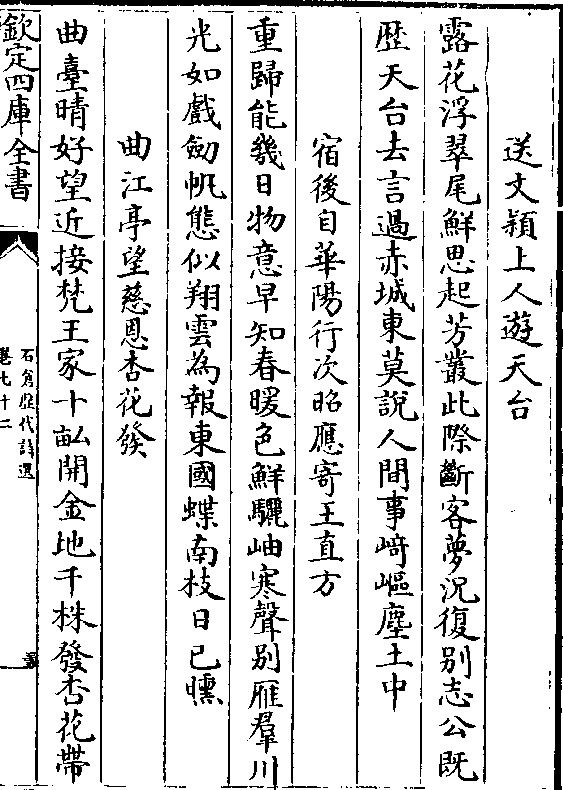 送文穎上人遊天台
露花浮翠尾鮮思起芳叢此際斷客夢況復別志公既
歴天台去言過赤城東莫說人間事﨑嶇塵土中
宿後自華陽行次昭應寄王直方
重歸能幾日物意早知春暖色鮮驪岫寒聲別雁羣川
光如戲劒帆態似翔雲為報東國蝶南枝日已曛
曲江亭望慈恩杏花發
曲臺晴好望近接梵王家十畝開金地千株發杏花帶
欽定四庫全書
石倉歴代詩選
卷七十二